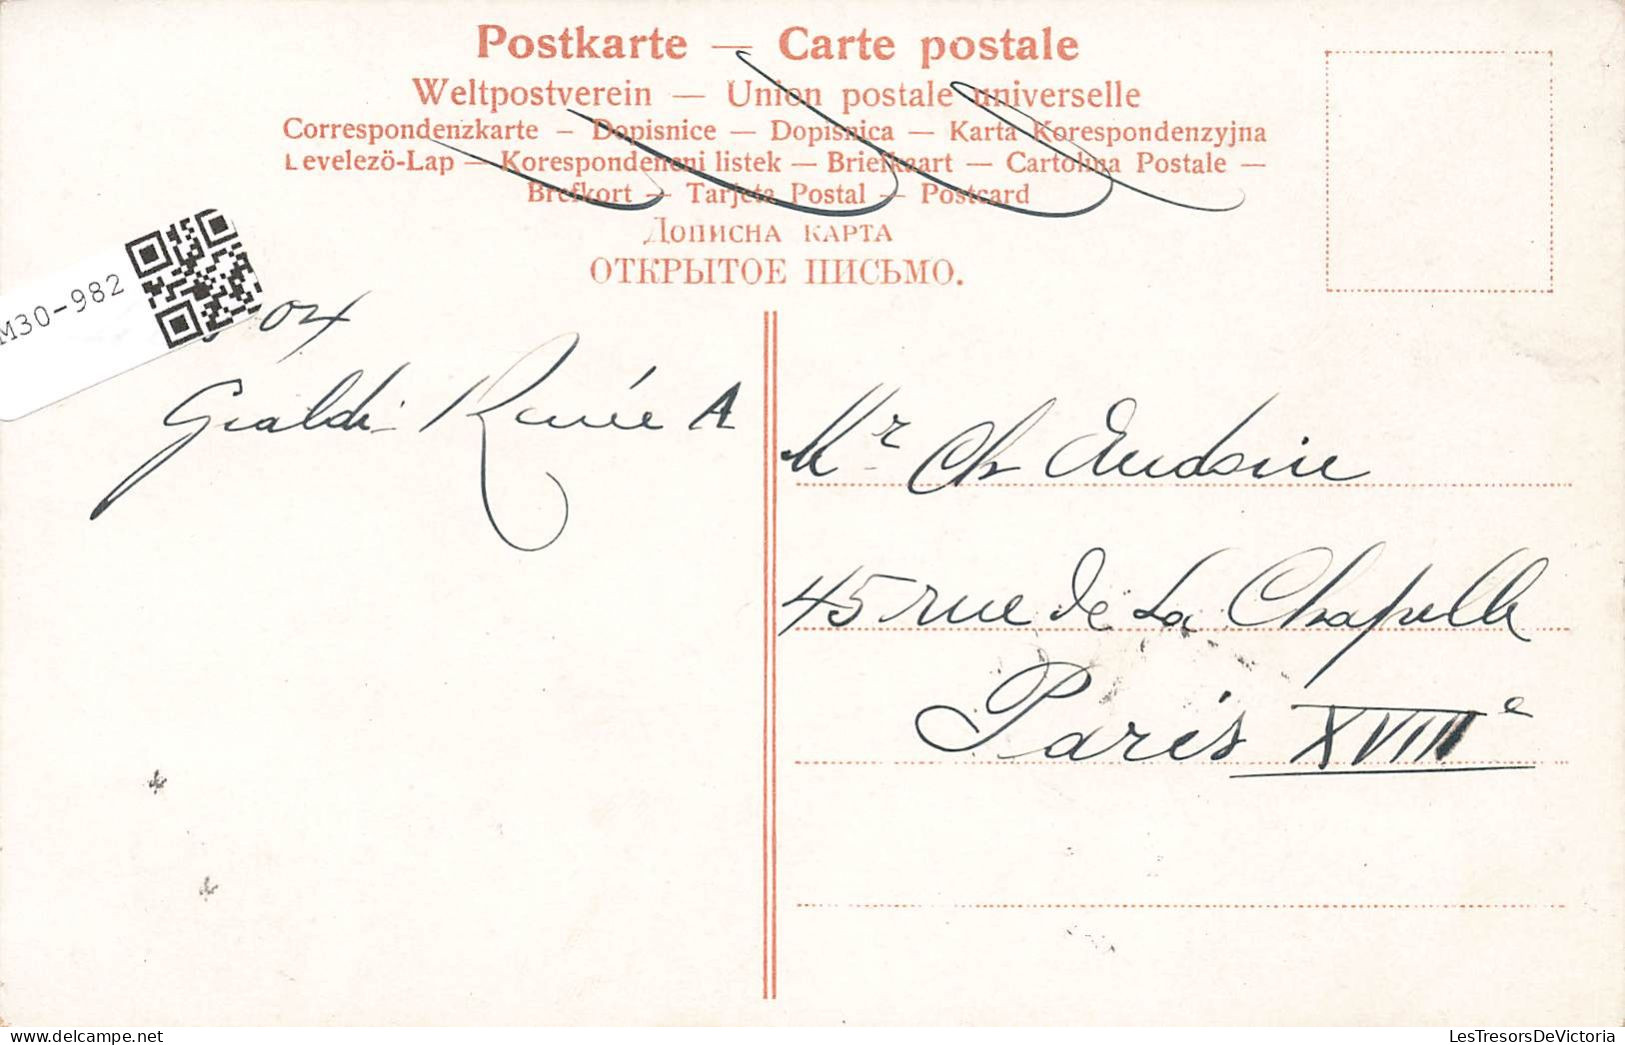 Postkarte — Carte postale
Weltpostverein — Union postale universelle
Correspondenzkarte — Dopisnice — Dopisnica — Karta Korespondenzyjna
Levelezö-Lap — Korespondenčni listek — Briefkaart — Cartolina Postale —
Brefkort — Tarjeta Postal — Postcard
Дописна карта
ОТКРЫТОЕ ПИСЬМО.
M30-982
04
Renée A
Mr Ch Audoin
45 rue de La Chapelle
Paris XVIIIe
delcampe.net
LesTresorsDeVictoria